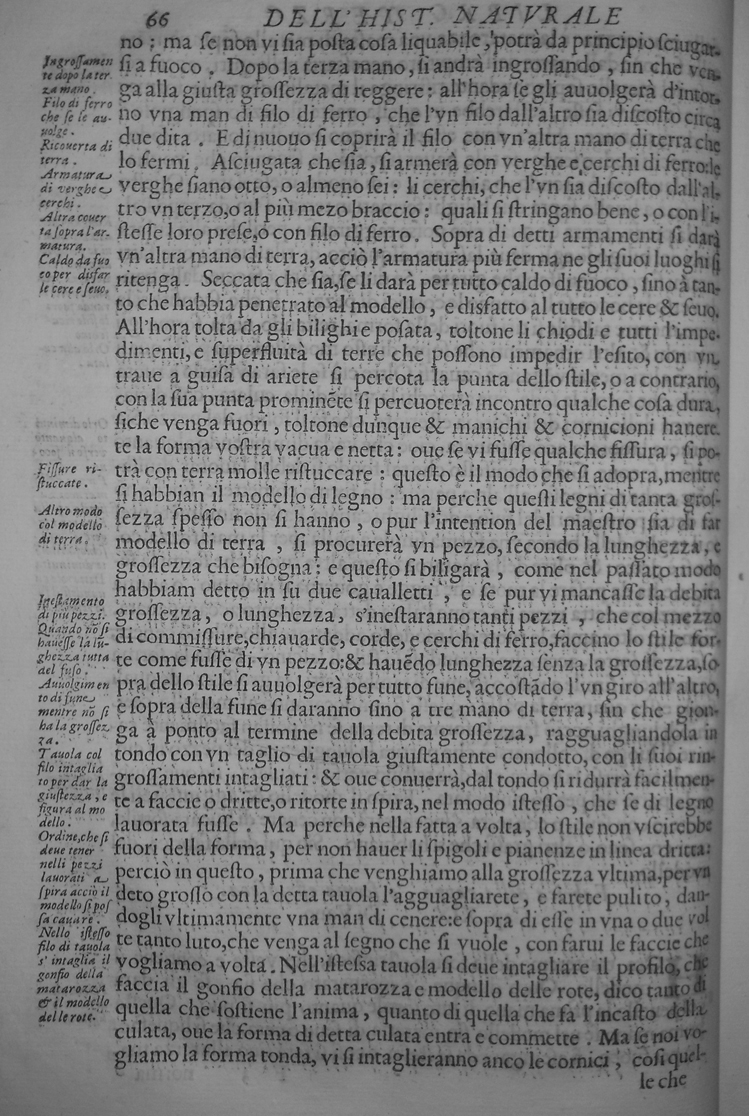 66 DELL'HIST. NATVRALE
no: ma ſe non vi ſia poſta coſa liquabile, potrà da principio ſciugar-
ſi a fuoco. Dopo la terza mano, ſi andrà ingroſſando, ſin che ven-
ga alla giuſta groſſezza di reggere: all'hora ſe gli auuolgerà d'intor-
no vna man di filo di ferro, che l'vn filo dall'altro ſia diſcoſto circa
due dita. E di nuouo ſi coprirà il filo con vn'altra mano di terra che
lo fermi. Aſciugata che ſia, ſi armerà con verghe e cerchi di ferro: le
verghe ſiano otto, o almeno ſei: li cerchi, che l'vn ſia diſcoſto dall'al-
tro vn terzo, o al più mezo braccio: quali ſi ſtringano bene, o con l'i-
ſteſſe loro preſe, o con filo di ferro. Sopra di detti armamenti ſi darà
vn'altra mano di terra, acciò l'armatura più ferma ne gli ſuoi luoghi ſi
ritenga. Seccata che ſia, ſe li darà per tutto caldo di fuoco, ſino à tan-
to che habbia penetrato al modello, e disfatto al tutto le cere & ſeuo.
All'hora tolta da gli bilighi e poſata, toltone li chiodi e tutti l'impe-
dimenti, e ſuperfluità di terre che poſſono impedir l'eſito, con vn
traue a guiſa di ariete ſi percota la punta dello ſtile, o a contrario,
con la ſua punta prominẽte ſi percuoterà incontro qualche coſa dura,
ſiche venga fuori, toltone dunque & manichi & cornicioni hauere-
te la forma voſtra vacua e netta: oue ſe vi fuſſe qualche fiſſura, ſi po-
trà con terra molle riſtuccare: queſto è il modo che ſi adopra, mentre
ſi habbian il modello di legno: ma perche queſti legni di tanta groſ-
ſezza ſpeſſo non ſi hanno, o pur l'intention del maeſtro ſia di far
modello di terra, ſi procurerà vn pezzo, ſecondo la lunghezza, e
groſſezza che biſogna: e queſto ſi biligarà, come nel paſſato modo
habbiam detto in ſu due caualletti, e ſe pur vi mancaſſe la debita
groſſezza, o lunghezza, s'ineſtaranno tanti pezzi, che col mezzo
di commiſſure, chiauarde, corde, e cerchi di ferro, faccino lo ſtile for-
te come fuſſe di vn pezzo: & hauẽdo lunghezza ſenza la groſſezza, ſo
pra dello ſtile ſi auuolgerà per tutto fune, accoſtãdo l'vn giro all'altro,
e ſopra della fune ſi daranno ſino a tre mano di terra, ſin che gion-
ga à ponto al termine della debita groſſezza, ragguagliandola in
tondo con vn taglio di tauola giuſtamente condotto, con li ſuoi rin-
groſſamenti intagliati: & oue conuerrà, dal tondo ſi ridurrà facilmen-
te a faccie o dritte, o ritorte in ſpira, nel modo iſteſſo, che ſe di legno
lauorata fuſſe. Ma perche nella fatta a volta, lo ſtile non vſcirebbe
fuori della forma, per non hauer li ſpigoli e pianenze in linea dritta:
perciò in queſto, prima che venghiamo alla groſſezza vltima, per vn
deto groſſo con la detta tauola l'agguagliarete, e farete pulito, dan-
dogli vltimamente vna man di cenere: e ſopra di eſſe in vna o due vol
te tanto luto, che venga al ſegno che ſi vuole, con farui le faccie che
vogliamo a volta. Nell'iſteſsa tauola ſi deue intagliare il profilo, che
faccia il gonfio della matarozza e modello delle rote, dico tanto di
quella che ſoſtiene l'anima, quanto di quella che fà l'incaſto della
culata, oue la forma di detta culata entra e commette. Ma ſe noi vo-
gliamo la forma tonda, vi ſi intaglieranno anco le cornici, coſi quel-
le che
Ingroſſamen
te dopo la ter
za mano.
Filo di ferro
che ſe le au-
uolge.
Ricouerta di
terra.
Armatura
di verghe e
cerchi.
Altra couer
ta ſopra l'ar-
matura.
Caldo da fuo
co per disfar
le cere e ſeuo.
Fiſſure ri-
ſtuccate.
Altro modo
col modello
di terra.
Ineſtamento
di più pezzi.
Quando nõ ſi
haueſſe la lu-
ghezza tutta
del fuſo.
Auuolgimen
to di fune
mentre nõ ſi
ha la groſſez
za.
Tauola col
filo intaglia
to per dar la
giuſtezza, e
figura al mo
dello.
Ordine, che ſi
deue tener
nelli pezzi
lauorati a
ſpira acciò il
modello ſi poſ
ſa cauare.
Nello iſteſſo
filo di tauola
s'intaglia il
gonfio della
matarozza
& il modello
delle rote.